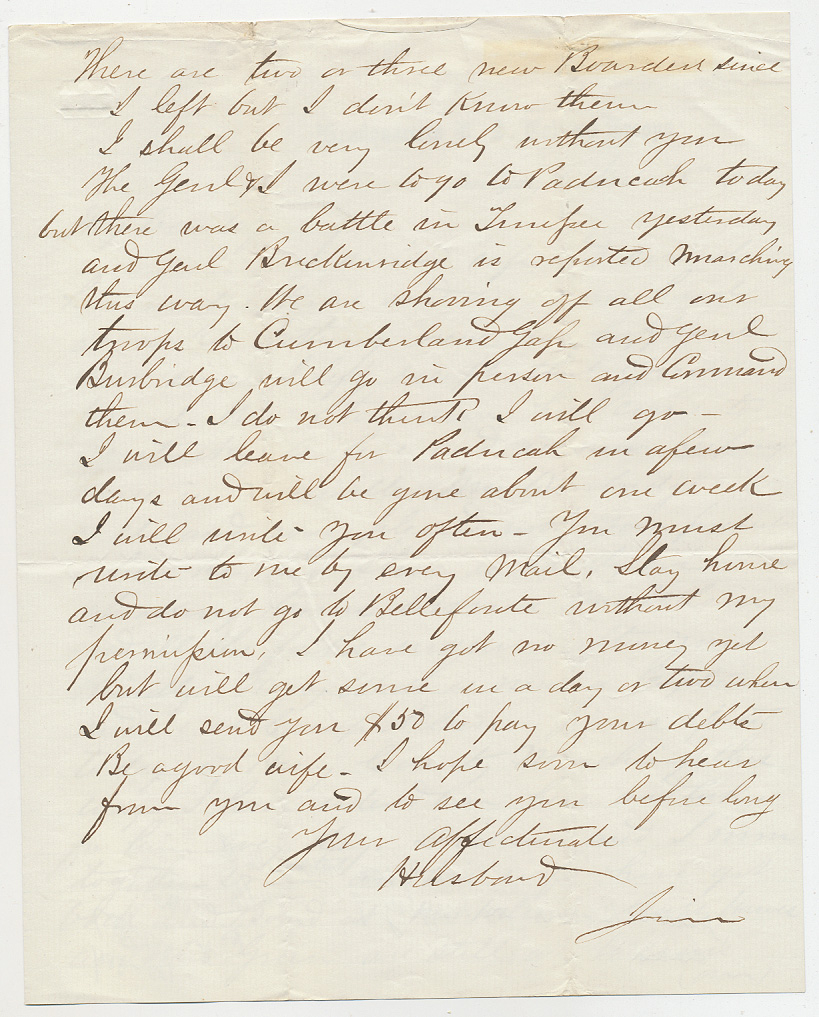 There are two or three new Boarders since
I left but I don't Know them
I shall be very lonely without you
The Genl & I were to go to Paducah today
but there was a battle in Tennessee yesterday
and Genl Breckinridge is reported marching
this way. We are shoving off all our
troops to Cumberland Gap and Genl
Burbridge will go in person and Command
them - I do not think I will go -
I will leave for Paducah in a few
days and will be gone about one week
I will write you often - You must
write to me by every Mail. Stay home
and do not go to Bellefonte without my
permission. I have got no money yet
but will get some in a day or two when
I will send you $50 to pay your debts
Be a good wife - I hope soon to hear
from you and to see you before long
Your Affectionate
Husband
Jim